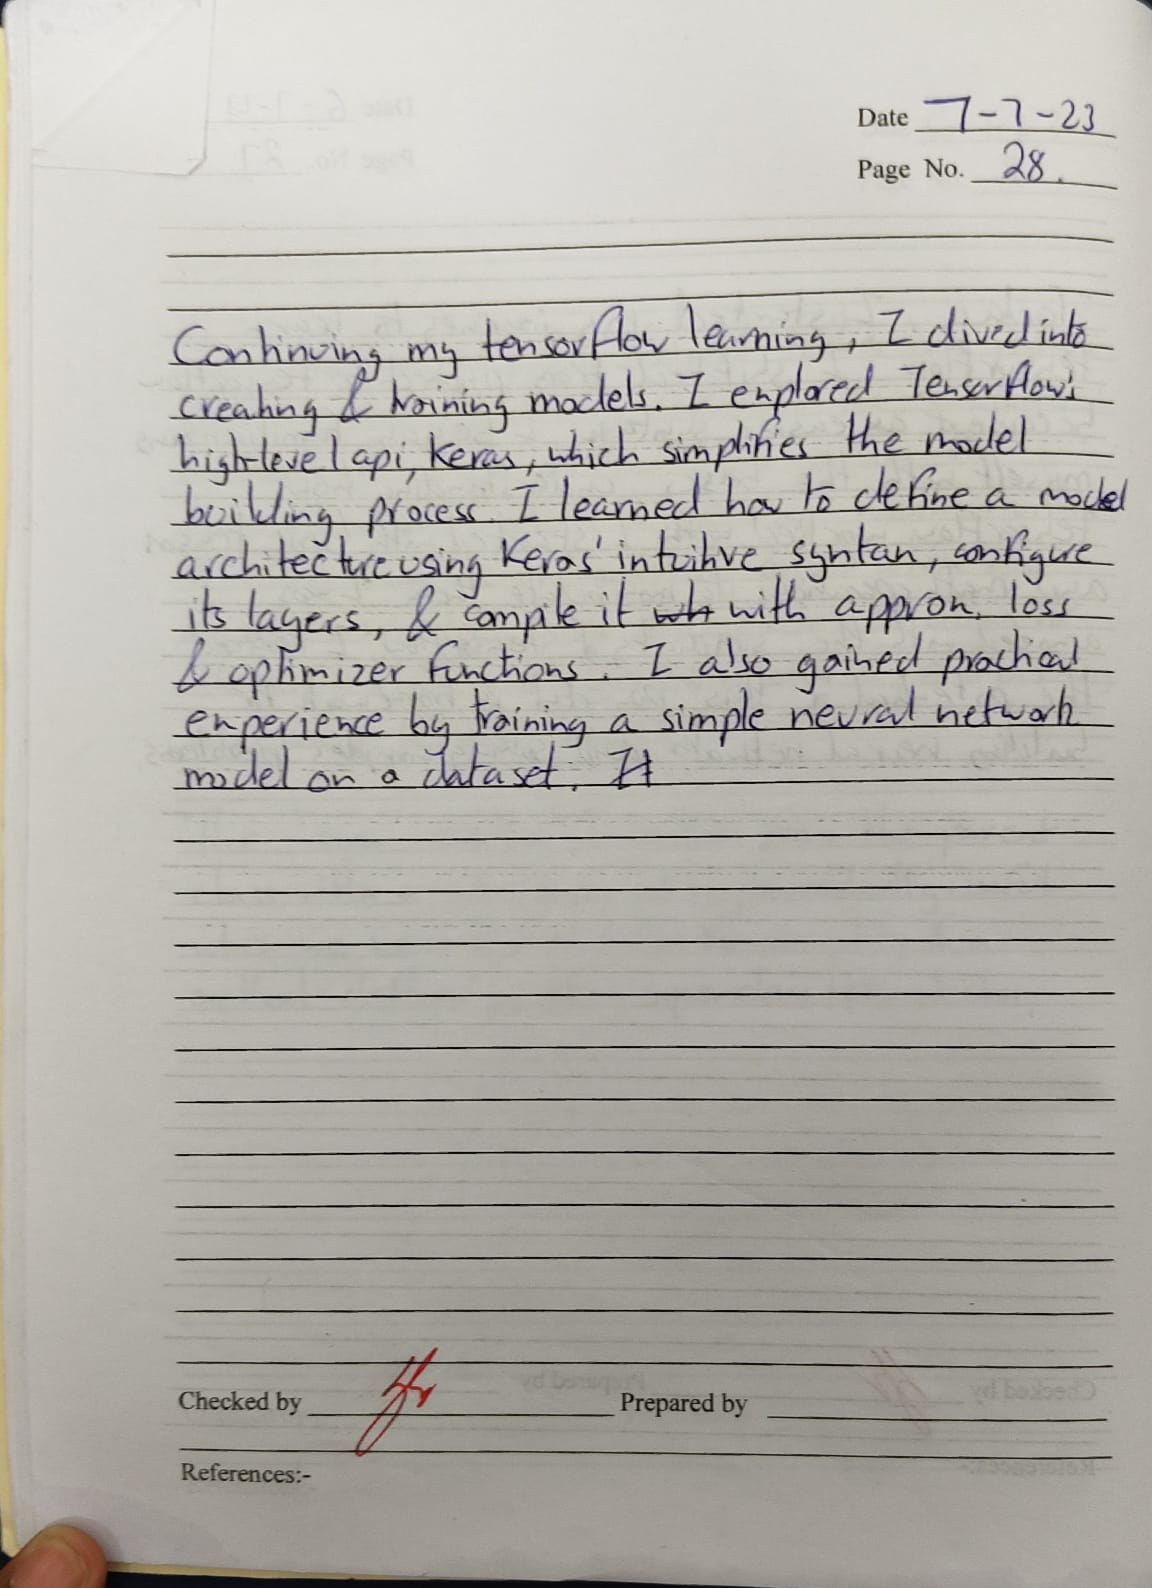 Date 7-7-23
Page No. 28.
Continuing my tensorflow learning, I dived into
creating & training models. I explored Tensorflow's
high-level api, Keras, which simplifies the model
building process. I learned how to define a model
architecture using Keras' intuitive syntax, configure
its layers, & compile it with approx. loss
& optimizer functions. I also gained practical
experience by training a simple neural network
model on a dataset.
Checked by
Prepared by
References:-